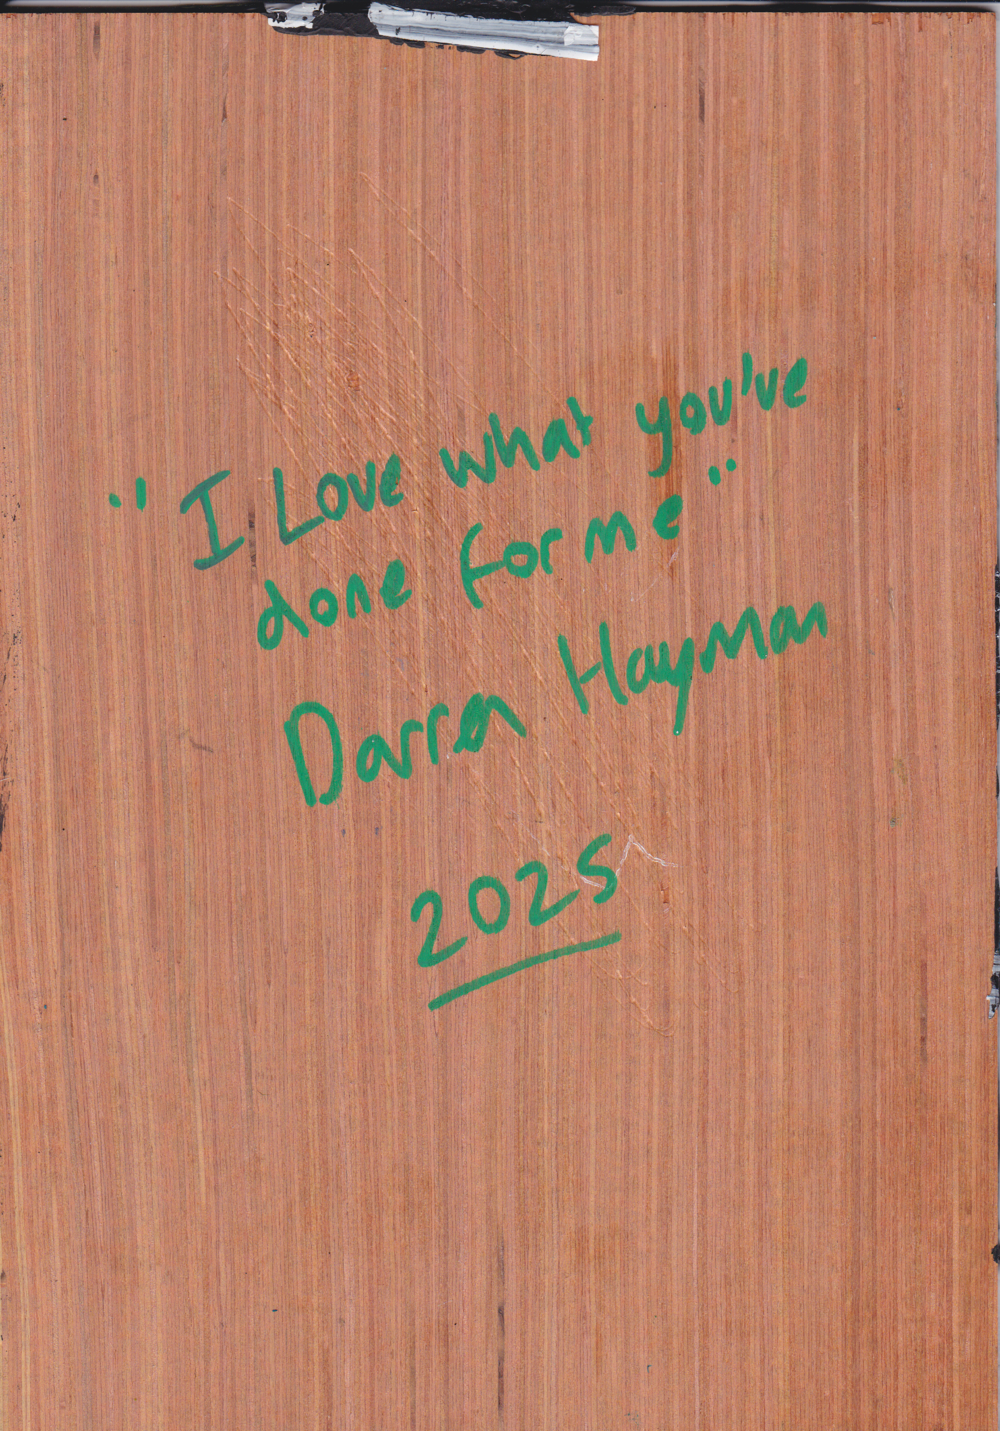 "I Love what you've
done for me"
Darren Hayman
2025